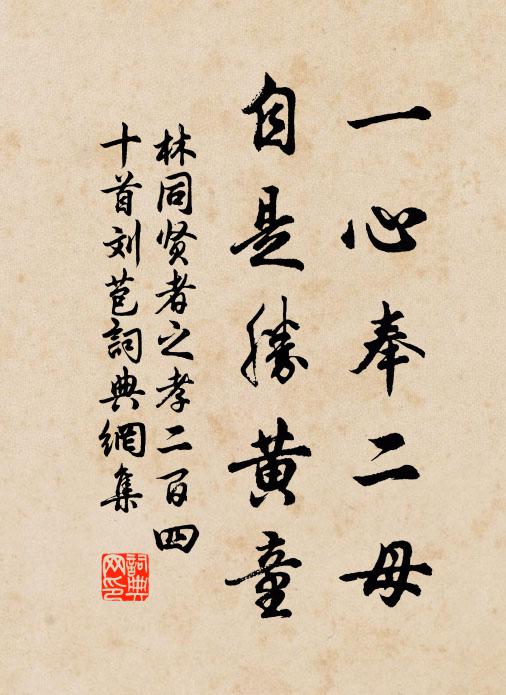 一心奉二母
自是勝黄童
林同贤者之孝二百四
十首刘苞詞典網集
詞典网印